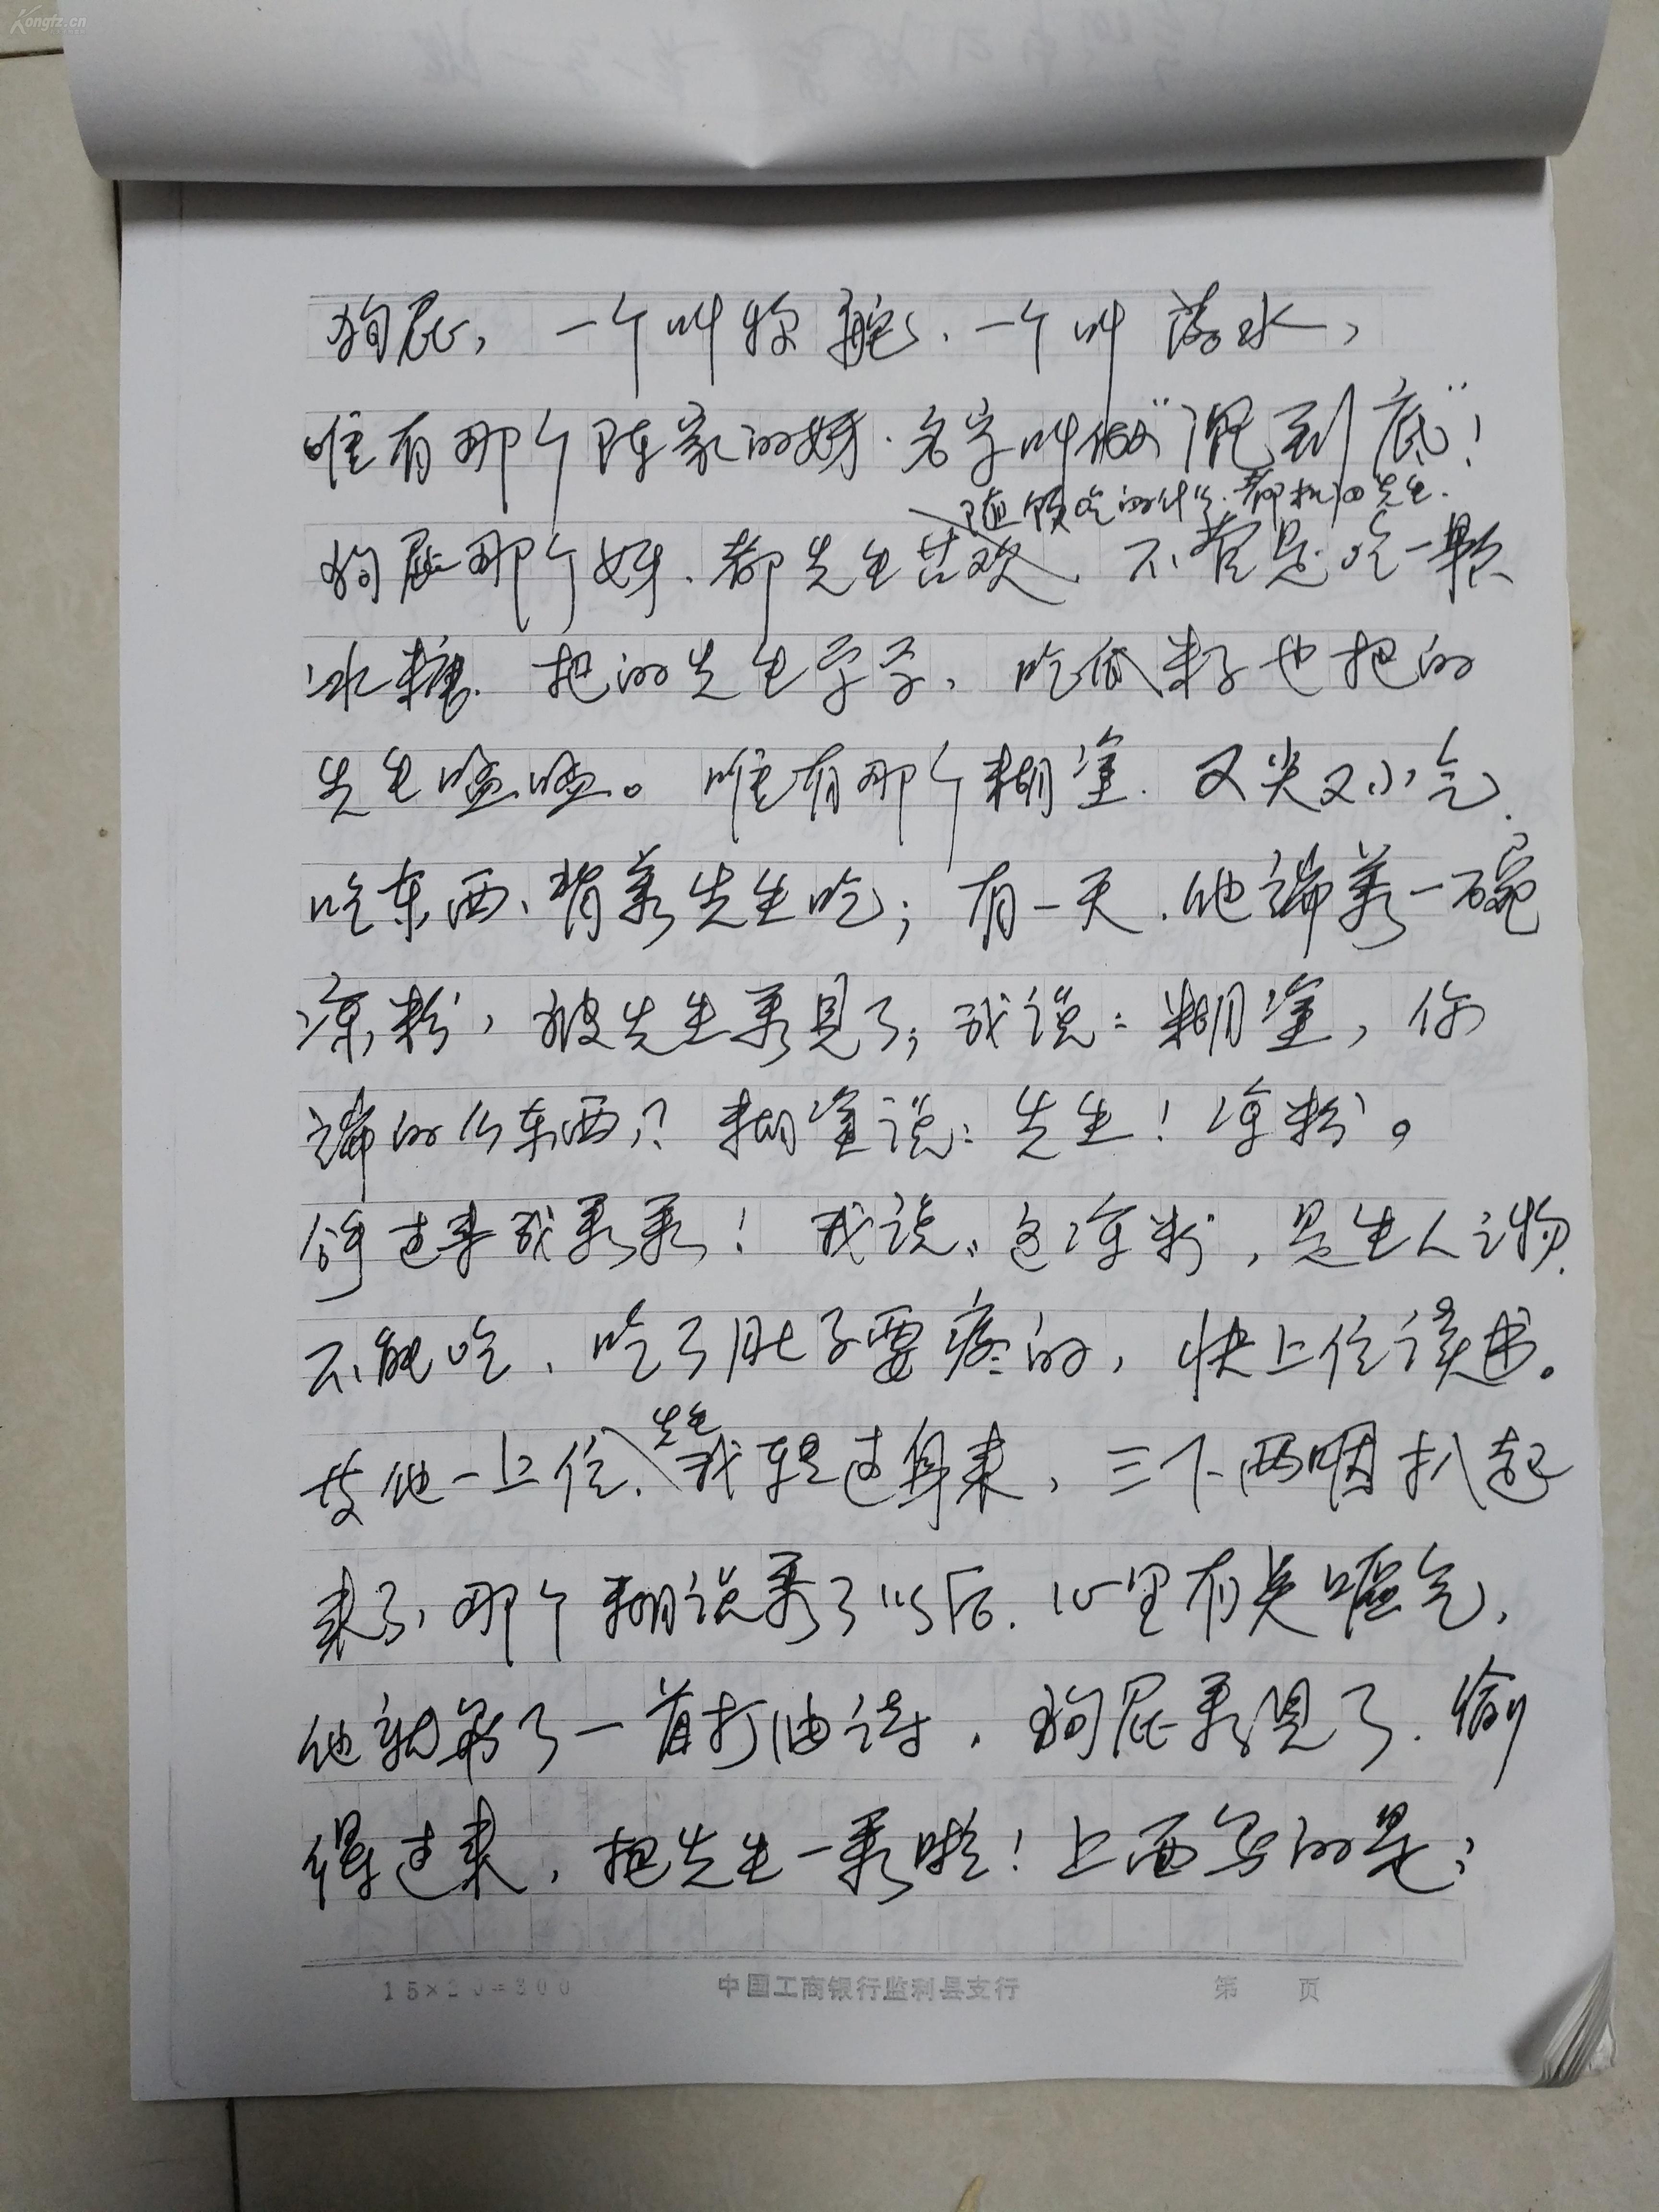 Kongfz.cn
狗屁，一个叫 一个叫 落水，
唯有那个陈家的伢.名字叫做"混到底"！
随便吃的什么.都 先生.
狗屁那个伢.都先生喜欢、不管是吃一颗
冰糖.把的先生 ，吃瓜米子也把的
先生嗑嗑。唯有那个糊涂.又尖又小气.
吃东西、背着先生吃；有一天.他端着一碗
凉粉，被先生看见了；我说：糊涂，你
端的么东西？糊涂说：先生！凉粉。
拿过来我看看！我说：这凉粉，是生人之物.
不能吃、吃了肚子要疼的，快上位读书。
先生
等他一上位.我转过身来，三下两咽扒起
来了，那个糊 看了以后.心里有点嘔气，
他就写了一首打油诗，狗屁看见了.偷
得过来，把先生一看啦！上面写的是：
15×20=300 中国工商银行监利县支行 第 页